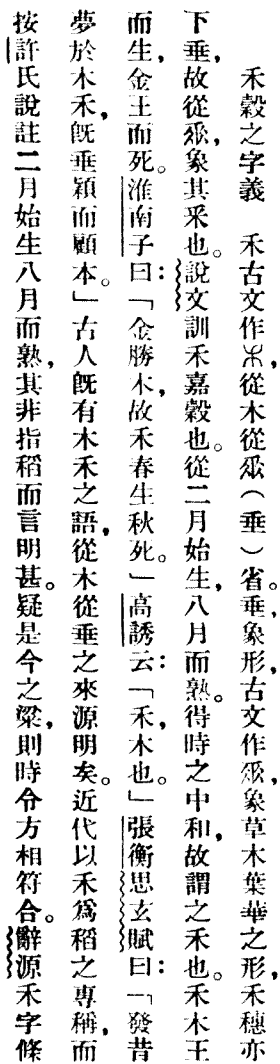 禾穀之字義　禾古文作𥝌，從木從𠂹（垂）省。垂，象形，古文作𠂹，象草木葉華之形，禾穗亦
下垂，故從𠂹，象其釆也。說文訓禾嘉穀也。從二月始生，八月而熟。得時之中和，故謂之禾也。禾木王
而生，金王而死。淮南子曰：「金勝木，故禾春生秋死。」高誘云：「禾，木也。」張衡思玄賦曰：「發昔
夢於木禾，旣垂穎而顧本。」古人旣有木禾之語，從木從垂之來源明矣。近代以禾爲稻之專稱，而
按許氏說註二月始生八月而熟，其非指稻而言明甚。疑是今之粱，則時令方相符合。辭源禾字條